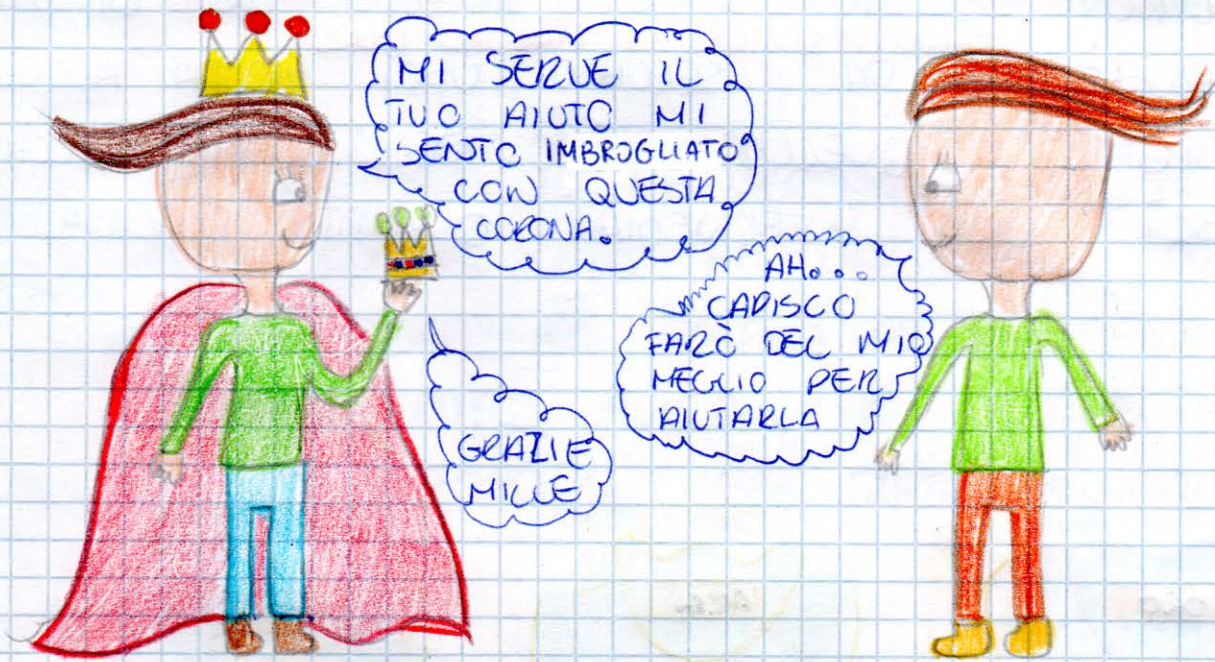 MI SERVE IL
TUO AIUTO MI
SENTO IMBROGLIATO
CON QUESTA
CORONA.
AH...
CAPISCO
FARÒ DEL MIO
MEGLIO PER
AIUTARLA
GRAZIE
MILLE